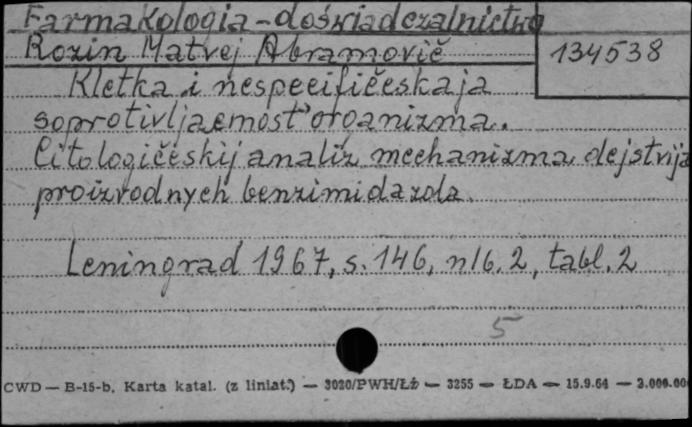 Farmakologia - doświadczalnictwo
Rozin Matvej Abramovič
134538
Kletka i nespecifičeskaja
soprotivljaemost' organizma.
Citologičeskij analiz mechanizma dejstvija
proizvodnych benzimidazola.
Leningrad 1967, s. 146, nlb. 2, tabl. 2
5
CWD — B-15-b. Karta katal. (z liniat.) — 3020/PWH/Łż — 3255 — ŁDA — 15.9.64 — 2.000.00